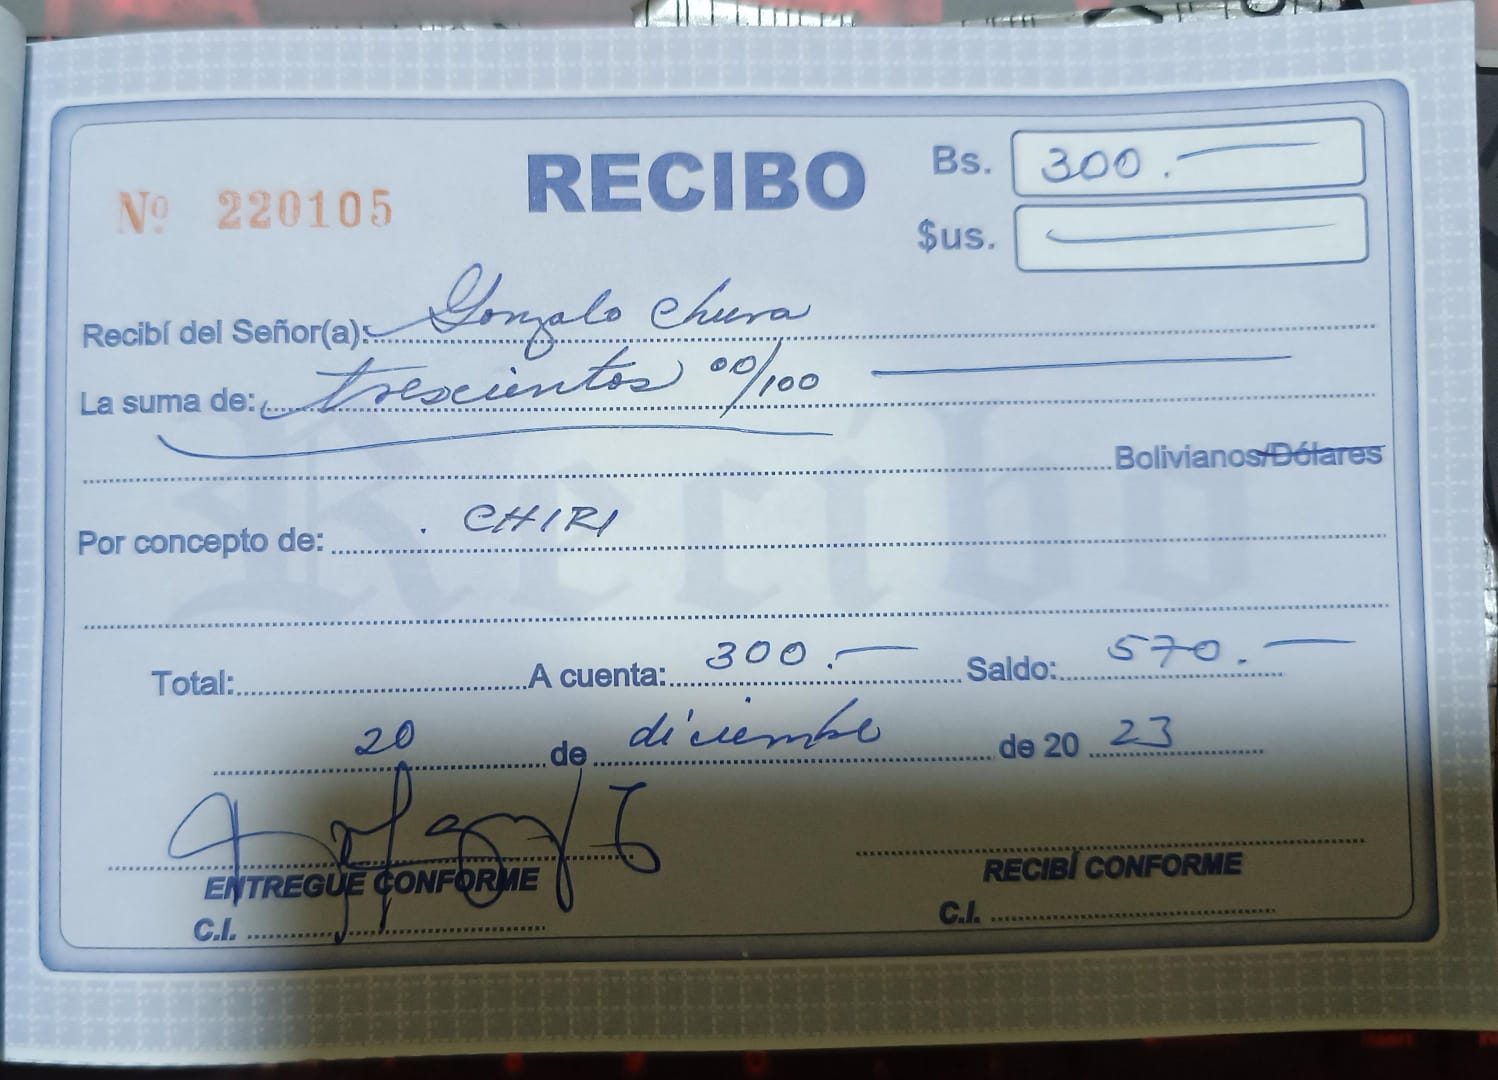 Nº 220105
RECIBO
Bs. 300.
$us.
Recibí del Señor(a): Gonzalo Chura
La suma de: trescientos 00/100
Bolivianos/Dólares
Por concepto de: . CHIRI
Total: A cuenta: 300. Saldo: 570.
20 de diciembre de 20 23
ENTREGUE CONFORME
C.I.
RECIBÍ CONFORME
C.I.
Recibo